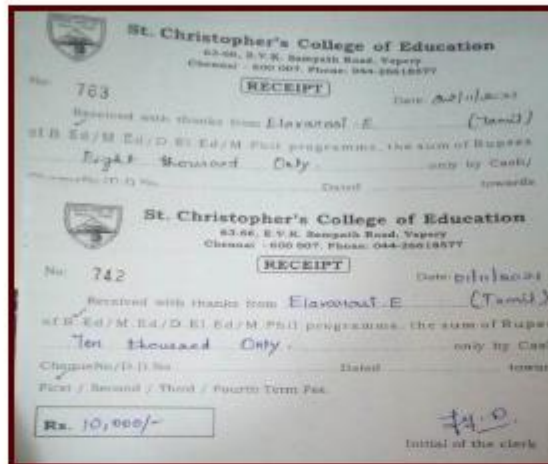 St. Christopher's College of Education
63-66, E.V.K. Sampath Road, Vepery
Chennai - 600 007. Phone: 044-26618577
RECEIPT
No: 763 Date:
Received with thanks from Elavarasi. E (Tamil)
of B.Ed/M.Ed/D.El.Ed/M.Phil programme, the sum of Rupees
Eight thousand Only only by Cash/
Dated towards
St. Christopher's College of Education
63-66, E.V.K. Sampath Road, Vepery
Chennai - 600 007. Phone: 044-26618577
RECEIPT
No: 742 Date:
Received with thanks from Elavarasi. E (Tamil)
of B.Ed/M.Ed/D.El.Ed/M.Phil programme, the sum of Rupees
Ten thousand Only only by Cash
Cheque No/D.D.No. Dated
First / Second / Third / Fourth Term Fee.
Rs. 10,000/-
Initial of the clerk